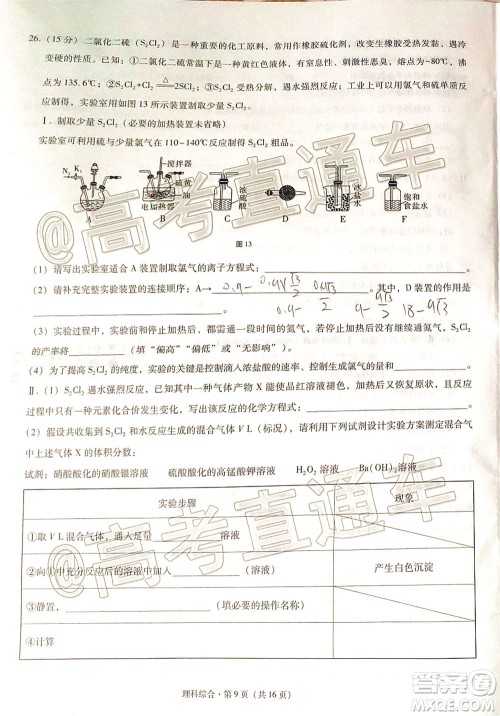 26.（15分）二氯化二硫（S₂Cl₂）是一种重要的化工原料，常用作橡胶硫化剂，改变生橡胶受热发黏、遇冷
变硬的性质。查阅资料：①二氯化二硫常温下是一种黄红色液体，有刺激性、窒息性恶臭，熔点为-80℃，
沸点为135.6℃；②S₂Cl₂+Cl₂⇌2SCl₂；③S₂Cl₂受热易分解，遇水强烈反应；工业上可以由氯气和硫单质反
应制得。实验室用如图13所示装置制取少量S₂Cl₂。
Ⅰ.制取少量S₂Cl₂（必要的加热装置未省略）
实验室可利用硫与少量氯气在110~140℃反应制得S₂Cl₂粗品。
N₂ K₁
搅拌器
硫黄
电加热器
浓硫酸
冰盐水
饱和食盐水
A B C D E F
图13
（1）请写出实验室适合A装置制取氯气的离子方程式：
（2）请补充完整实验装置的连接顺序：A→ 。其中，D装置的作用是
（3）实验过程中，实验前和停止加热后，都需通一段时间的氮气，若停止加热后没有继续通氮气，S₂Cl₂
的产率将（填“偏高”“偏低”或“无影响”）。
（4）为了提高S₂Cl₂的纯度，实验的关键是控制滴入浓盐酸的速率，控制生成氯气的量以及
Ⅱ.（1）S₂Cl₂遇水强烈反应，已知其中一种气体产物X能使品红溶液褪色，加热后又恢复原状，且反应
过程中只有一种元素化合价发生变化，写出该反应的化学方程式：
（2）假设共收集到S₂Cl₂和水反应生成的混合气体V L（标况），请利用下列试剂设计实验方案测定混合气体
中上述气体X的体积分数：
试剂：硝酸酸化的硝酸银溶液 硫酸酸化的高锰酸钾溶液 H₂O₂溶液 Ba(OH)₂溶液
实验步骤 现象
①取V L混合气体，通入足量 溶液
②向①中充分反应后的溶液中加入 溶液 产生白色沉淀
③静置， （填必要的操作名称）
④计算
理科综合·第9页（共16页）
@高考直通车
@高考直通车
答案圈
MXQE.COM